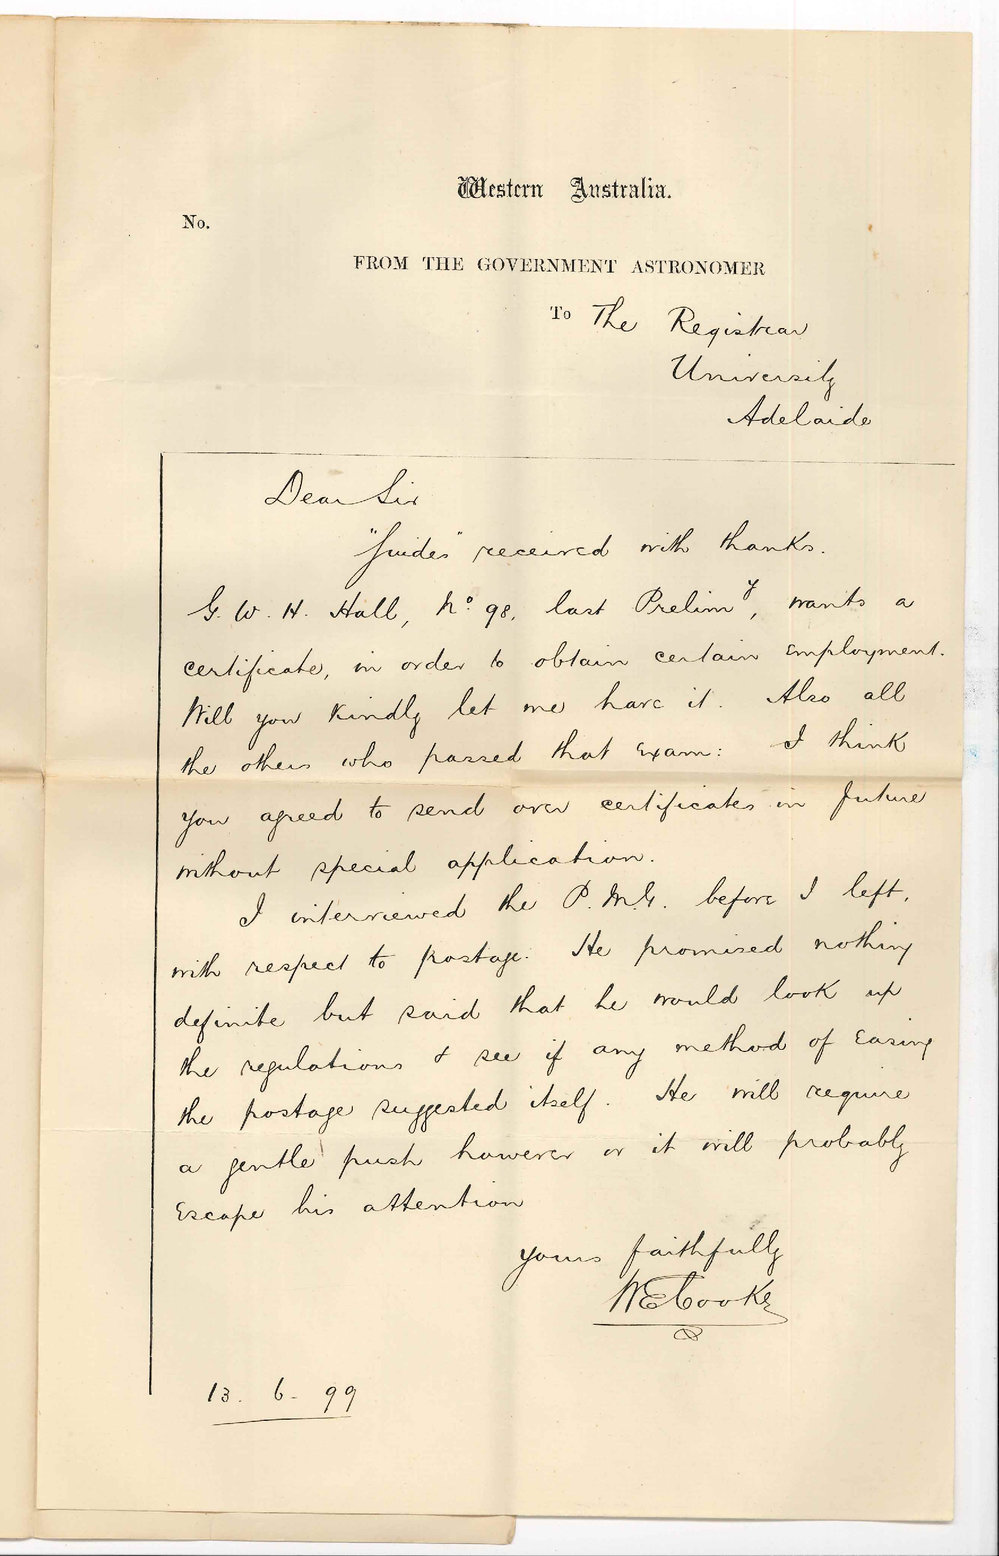 Western Australia.
No.
FROM THE GOVERNMENT ASTRONOMER
To The Registrar
University
Adelaide
Dear Sir
"Guides" received with thanks.
G. W. H. Hall, No. 98, last Prelimy, wants a
certificate, in order to obtain certain employment.
Will you kindly let me have it. Also all
the others who passed that Exam: I think
you agreed to send over certificates in future
without special application.
I interviewed the P.M.G. before I left,
with respect to postage. He promised nothing
definite but said that he would look up
the regulations & see if any method of easing
the postage suggested itself. He will require
a gentle push however or it will probably
Escape his attention
yours faithfully
WECooke
13. 6. 99